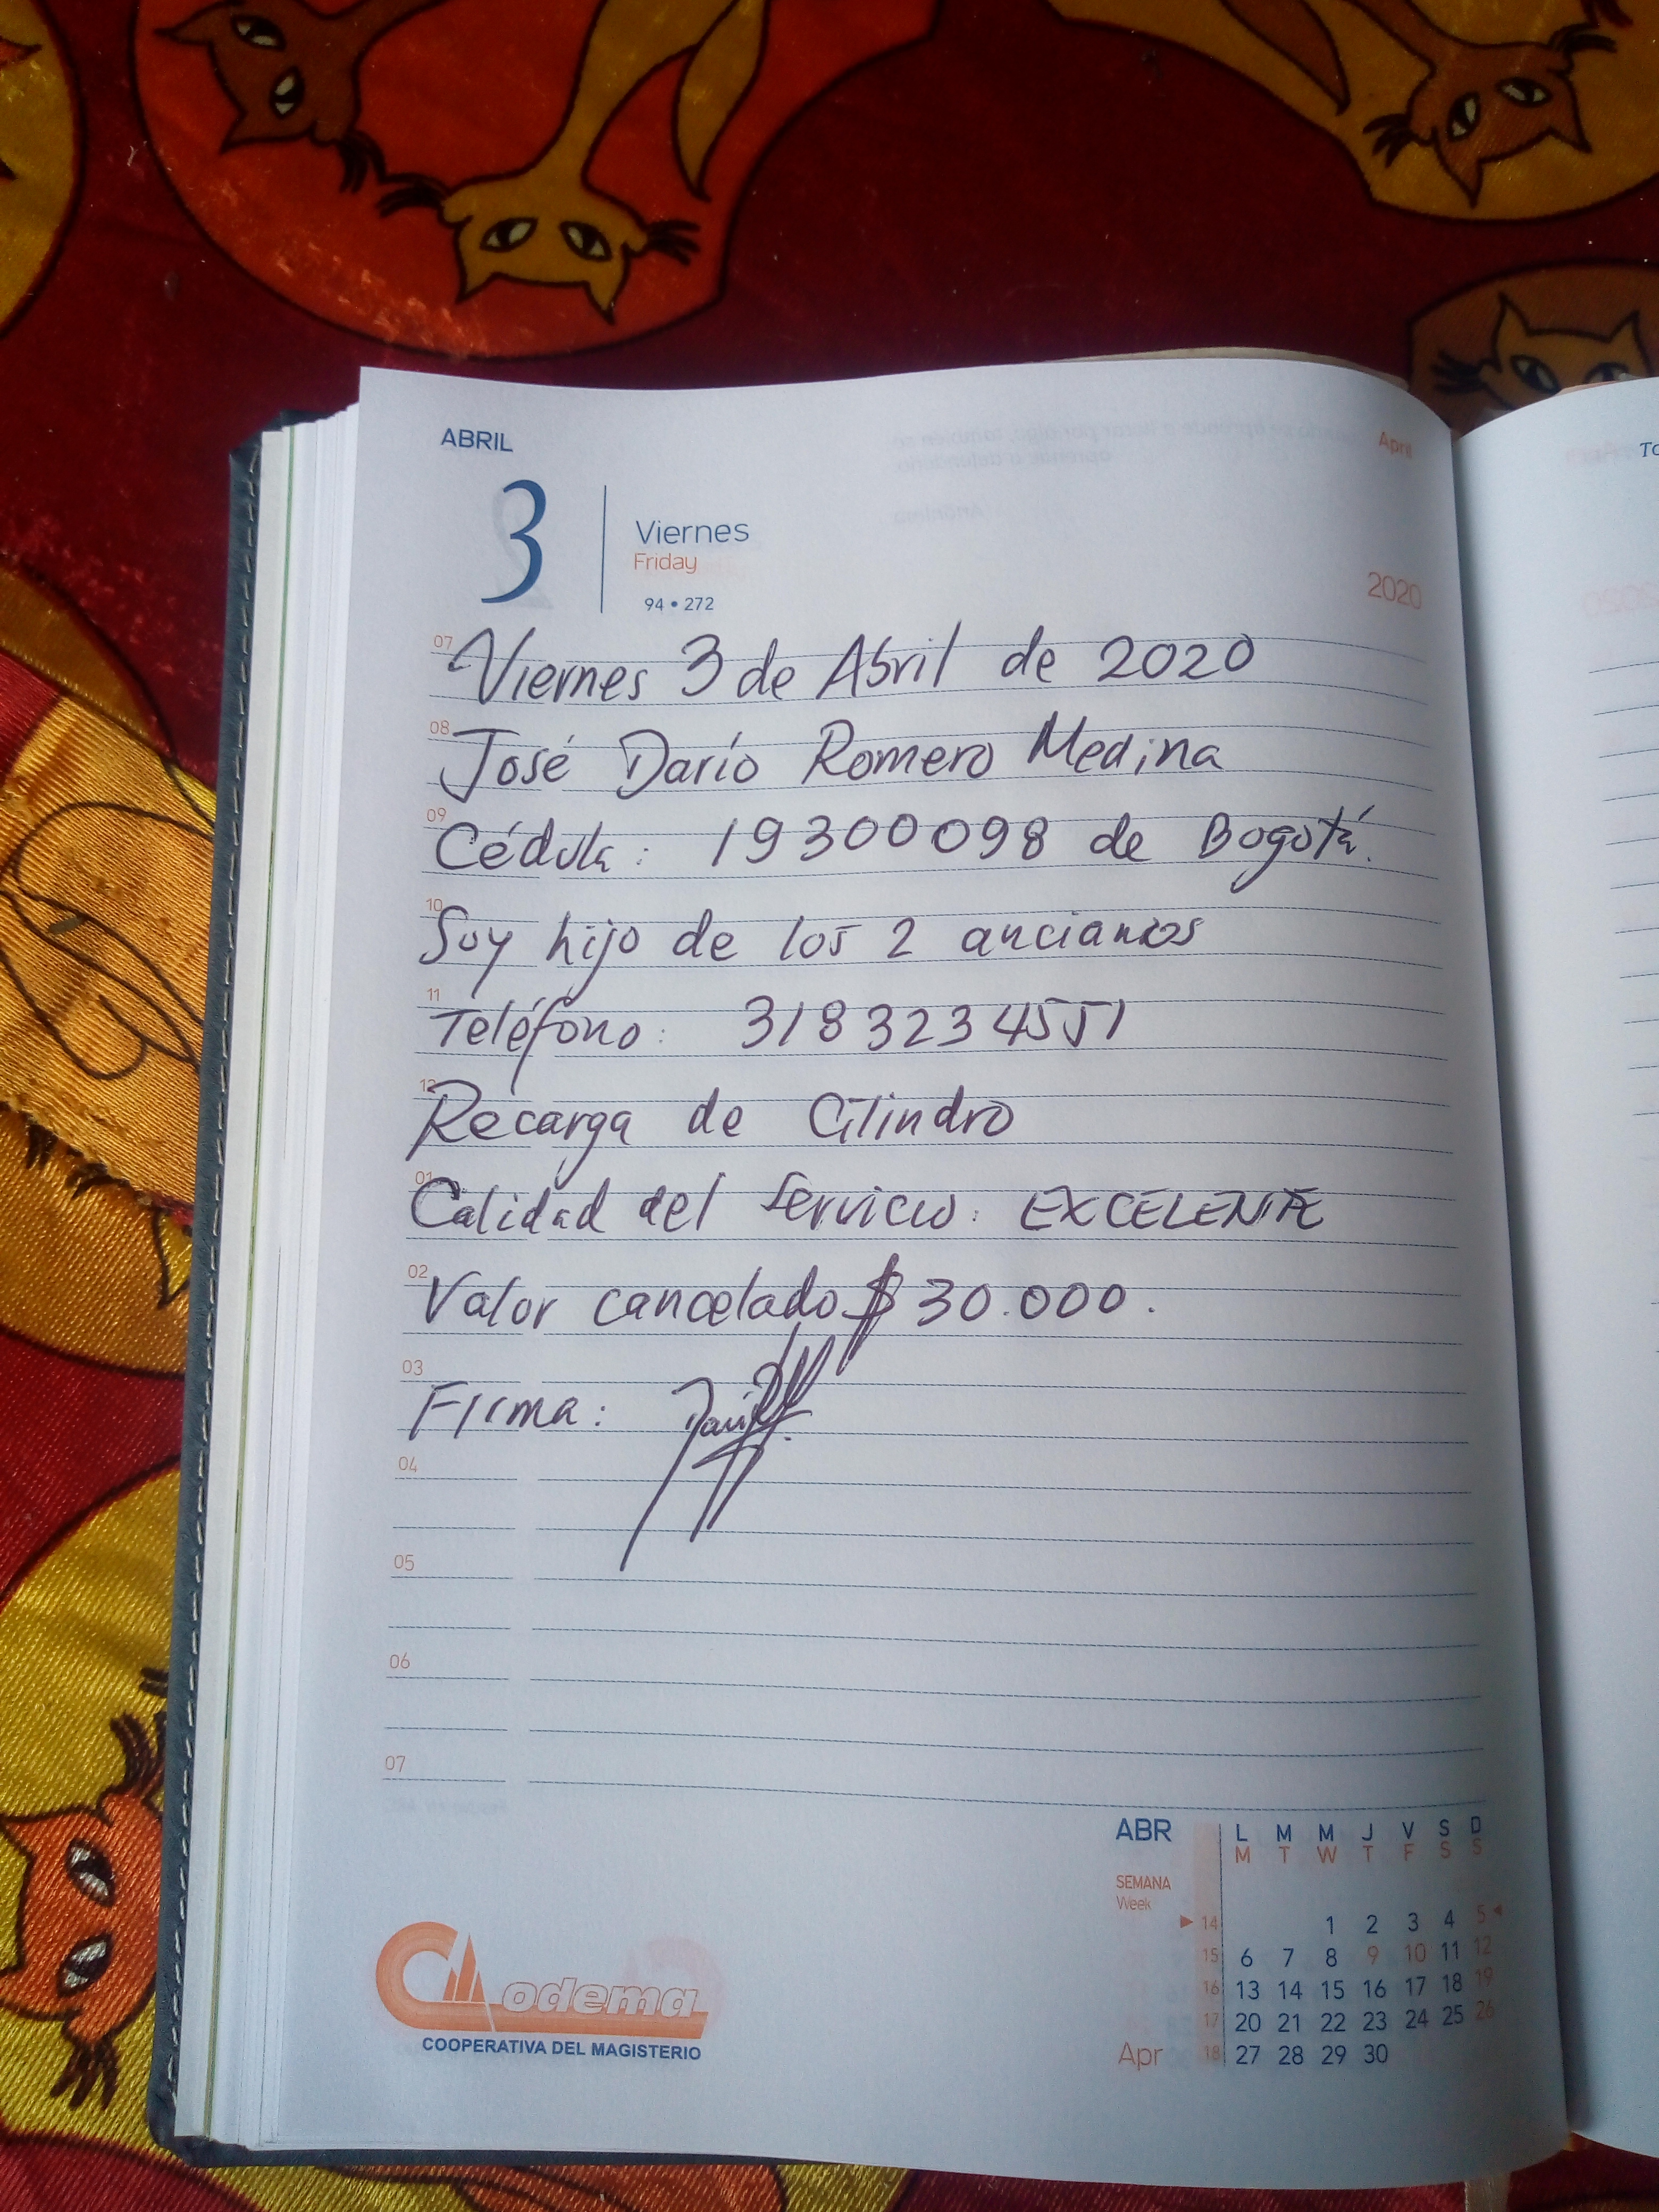 ABRIL
April
3
Viernes
Friday
94 • 272
2020
07 Viernes 3 de Abril de 2020
08 José Darío Romero Medina
09 Cédula: 19300098 de Bogotá.
10 Soy hijo de los 2 ancianos
11 Teléfono: 3183234551
12 Recarga de Cilindro
01 Calidad del Servicio: EXCELENTE
02 Valor cancelado $ 30.000.
03
Firma:
04
05
06
07
ABR L M M J V S D
M T W T F S S
SEMANA
Week
14 1 2 3 4 5
15 6 7 8 9 10 11 12
16 13 14 15 16 17 18 19
17 20 21 22 23 24 25 26
Apr 18 27 28 29 30
Codema
COOPERATIVA DEL MAGISTERIO